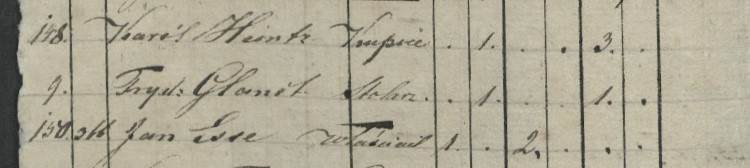 148. Karól Heintz Kupiec . 1. . . 3. .
9. Fryd: Glanet Stolarz . 1. . 1. .
150. 366 Jan Esse Właściciel 1 . 2, . . .